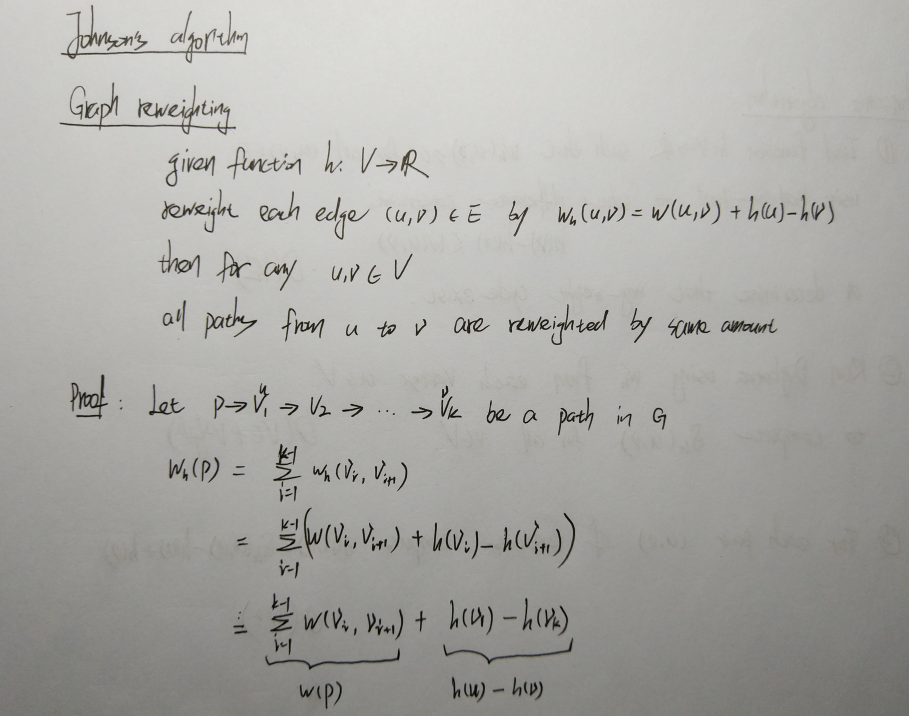 Johnson's algorithm
Graph reweighting
given function h: V→R
reweight each edge (u,v) ∈ E by wₕ(u,v) = w(u,v) + h(u)-h(v)
then for any u,v ∈ V
all paths from u to v are reweighted by same amount
Proof: Let p→v₁→v₂→...→vₖ be a path in G
u v
wₕ(p) = Σᵢ₌₁ᵏ⁻¹ wₕ(vᵢ, vᵢ₊₁)
= Σᵢ₌₁ᵏ⁻¹ (w(vᵢ, vᵢ₊₁) + h(vᵢ) - h(vᵢ₊₁))
= Σᵢ₌₁ᵏ⁻¹ w(vᵢ, vᵢ₊₁) + h(v₁) - h(vₖ)
w(p) h(u) - h(v)